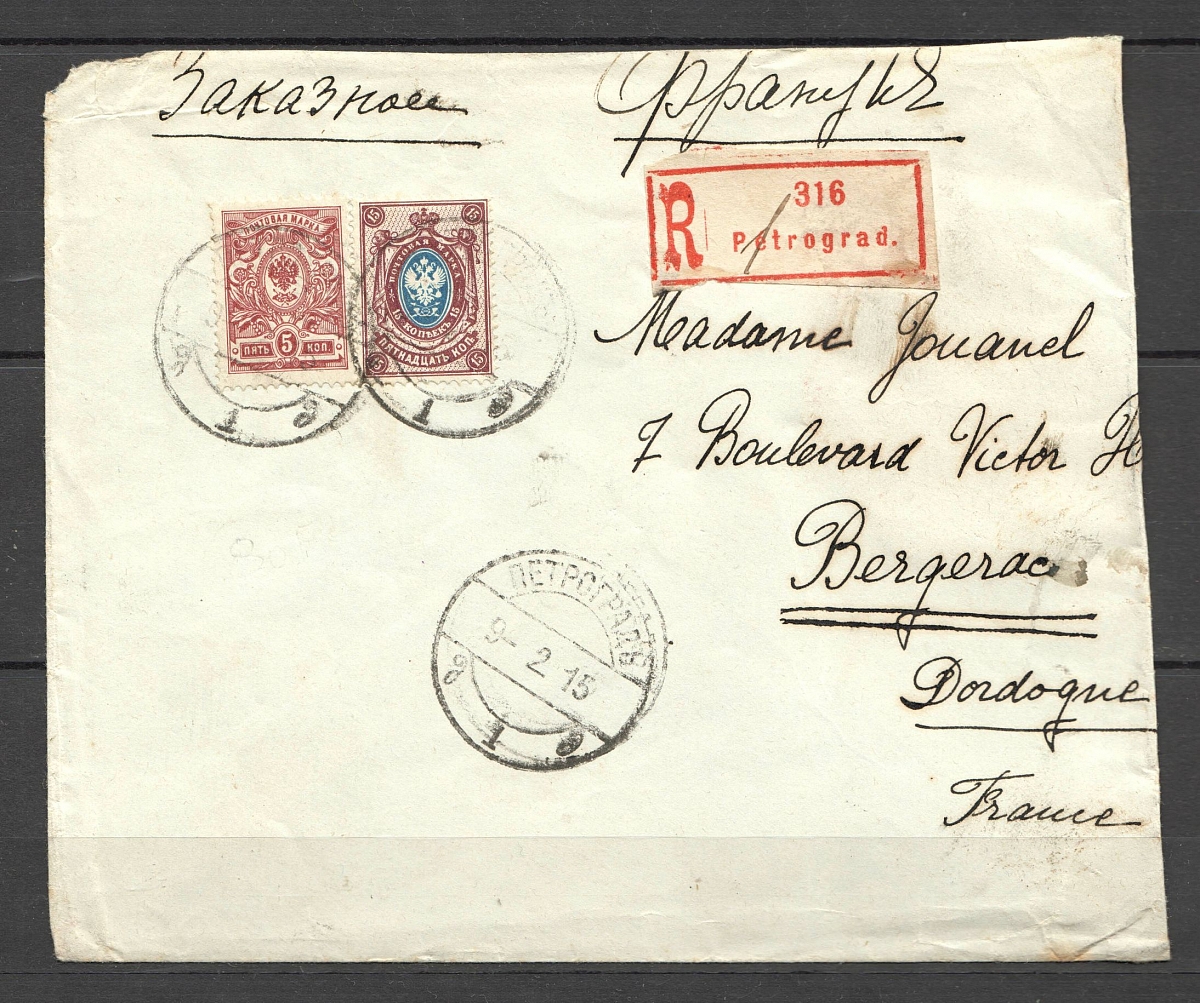 Заказное
Франція
R
316
Petrograd.
ПОЧТОВАЯ МАРКА
ПЯТЬ 5 КОП.
15 15
ПОЧТОВАЯ МАРКА
15 КОПѢЕКЪ 15
ПЯТНАДЦАТЬ КОП.
15 15
Madame Jouanel
7 Boulevard Victor H
Bergerac
Dordogne
France
ПЕТРОГРАДЪ
9-2 15